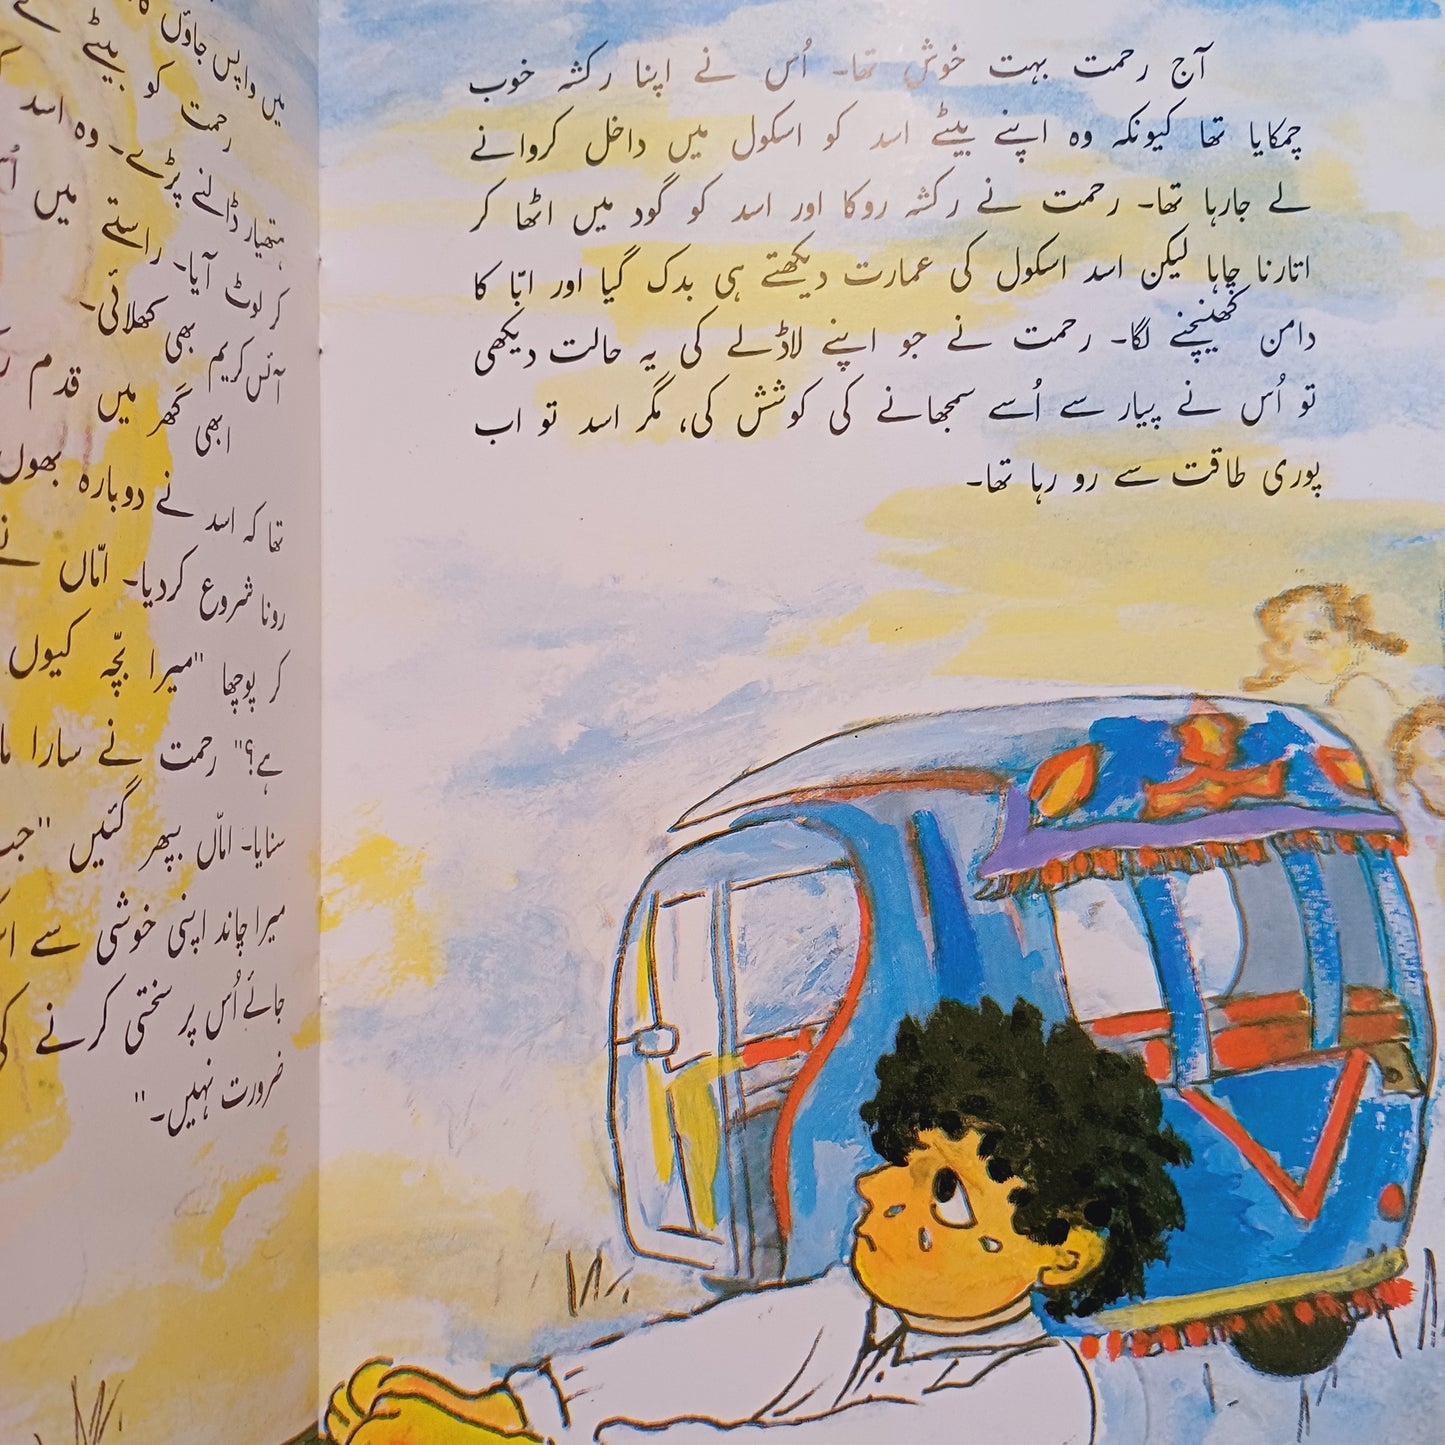 آج رحمت بہت خوش تھا۔ اُس نے اپنا رکشہ خوب
چمکایا تھا کیونکہ وہ اپنے بیٹے اسد کو اسکول میں داخل کروانے
لے جارہا تھا۔ رحمت نے رکشہ روکا اور اسد کو گود میں اٹھا کر
اتارنا چاہا لیکن اسد اسکول کی عمارت دیکھتے ہی بدک گیا اور ابّا کا
دامن کھینچنے لگا۔ رحمت نے جو اپنے لاڈلے کی یہ حالت دیکھی
تو اُس نے پیار سے اُسے سمجھانے کی کوشش کی، مگر اسد تو اب
پوری طاقت سے رو رہا تھا۔
میں واپس جاؤں
رحمت کو بیٹے
ہتھیار ڈالنے پڑے۔ وہ اسد
کر لوٹ آیا۔ راستے میں
آئس کریم بھی کھلائی۔
ابھی گھر میں قدم
تھا کہ اسد نے دوبارہ
رونا شروع کردیا۔ امّاں
کر پوچھا "میرا بچّہ کیوں
ہے؟" رحمت نے سارا
سنایا۔ امّاں بپھر گئیں "جب
میرا چاند اپنی خوشی سے
جائے اُس پر سختی کرنے
ضرورت نہیں۔"